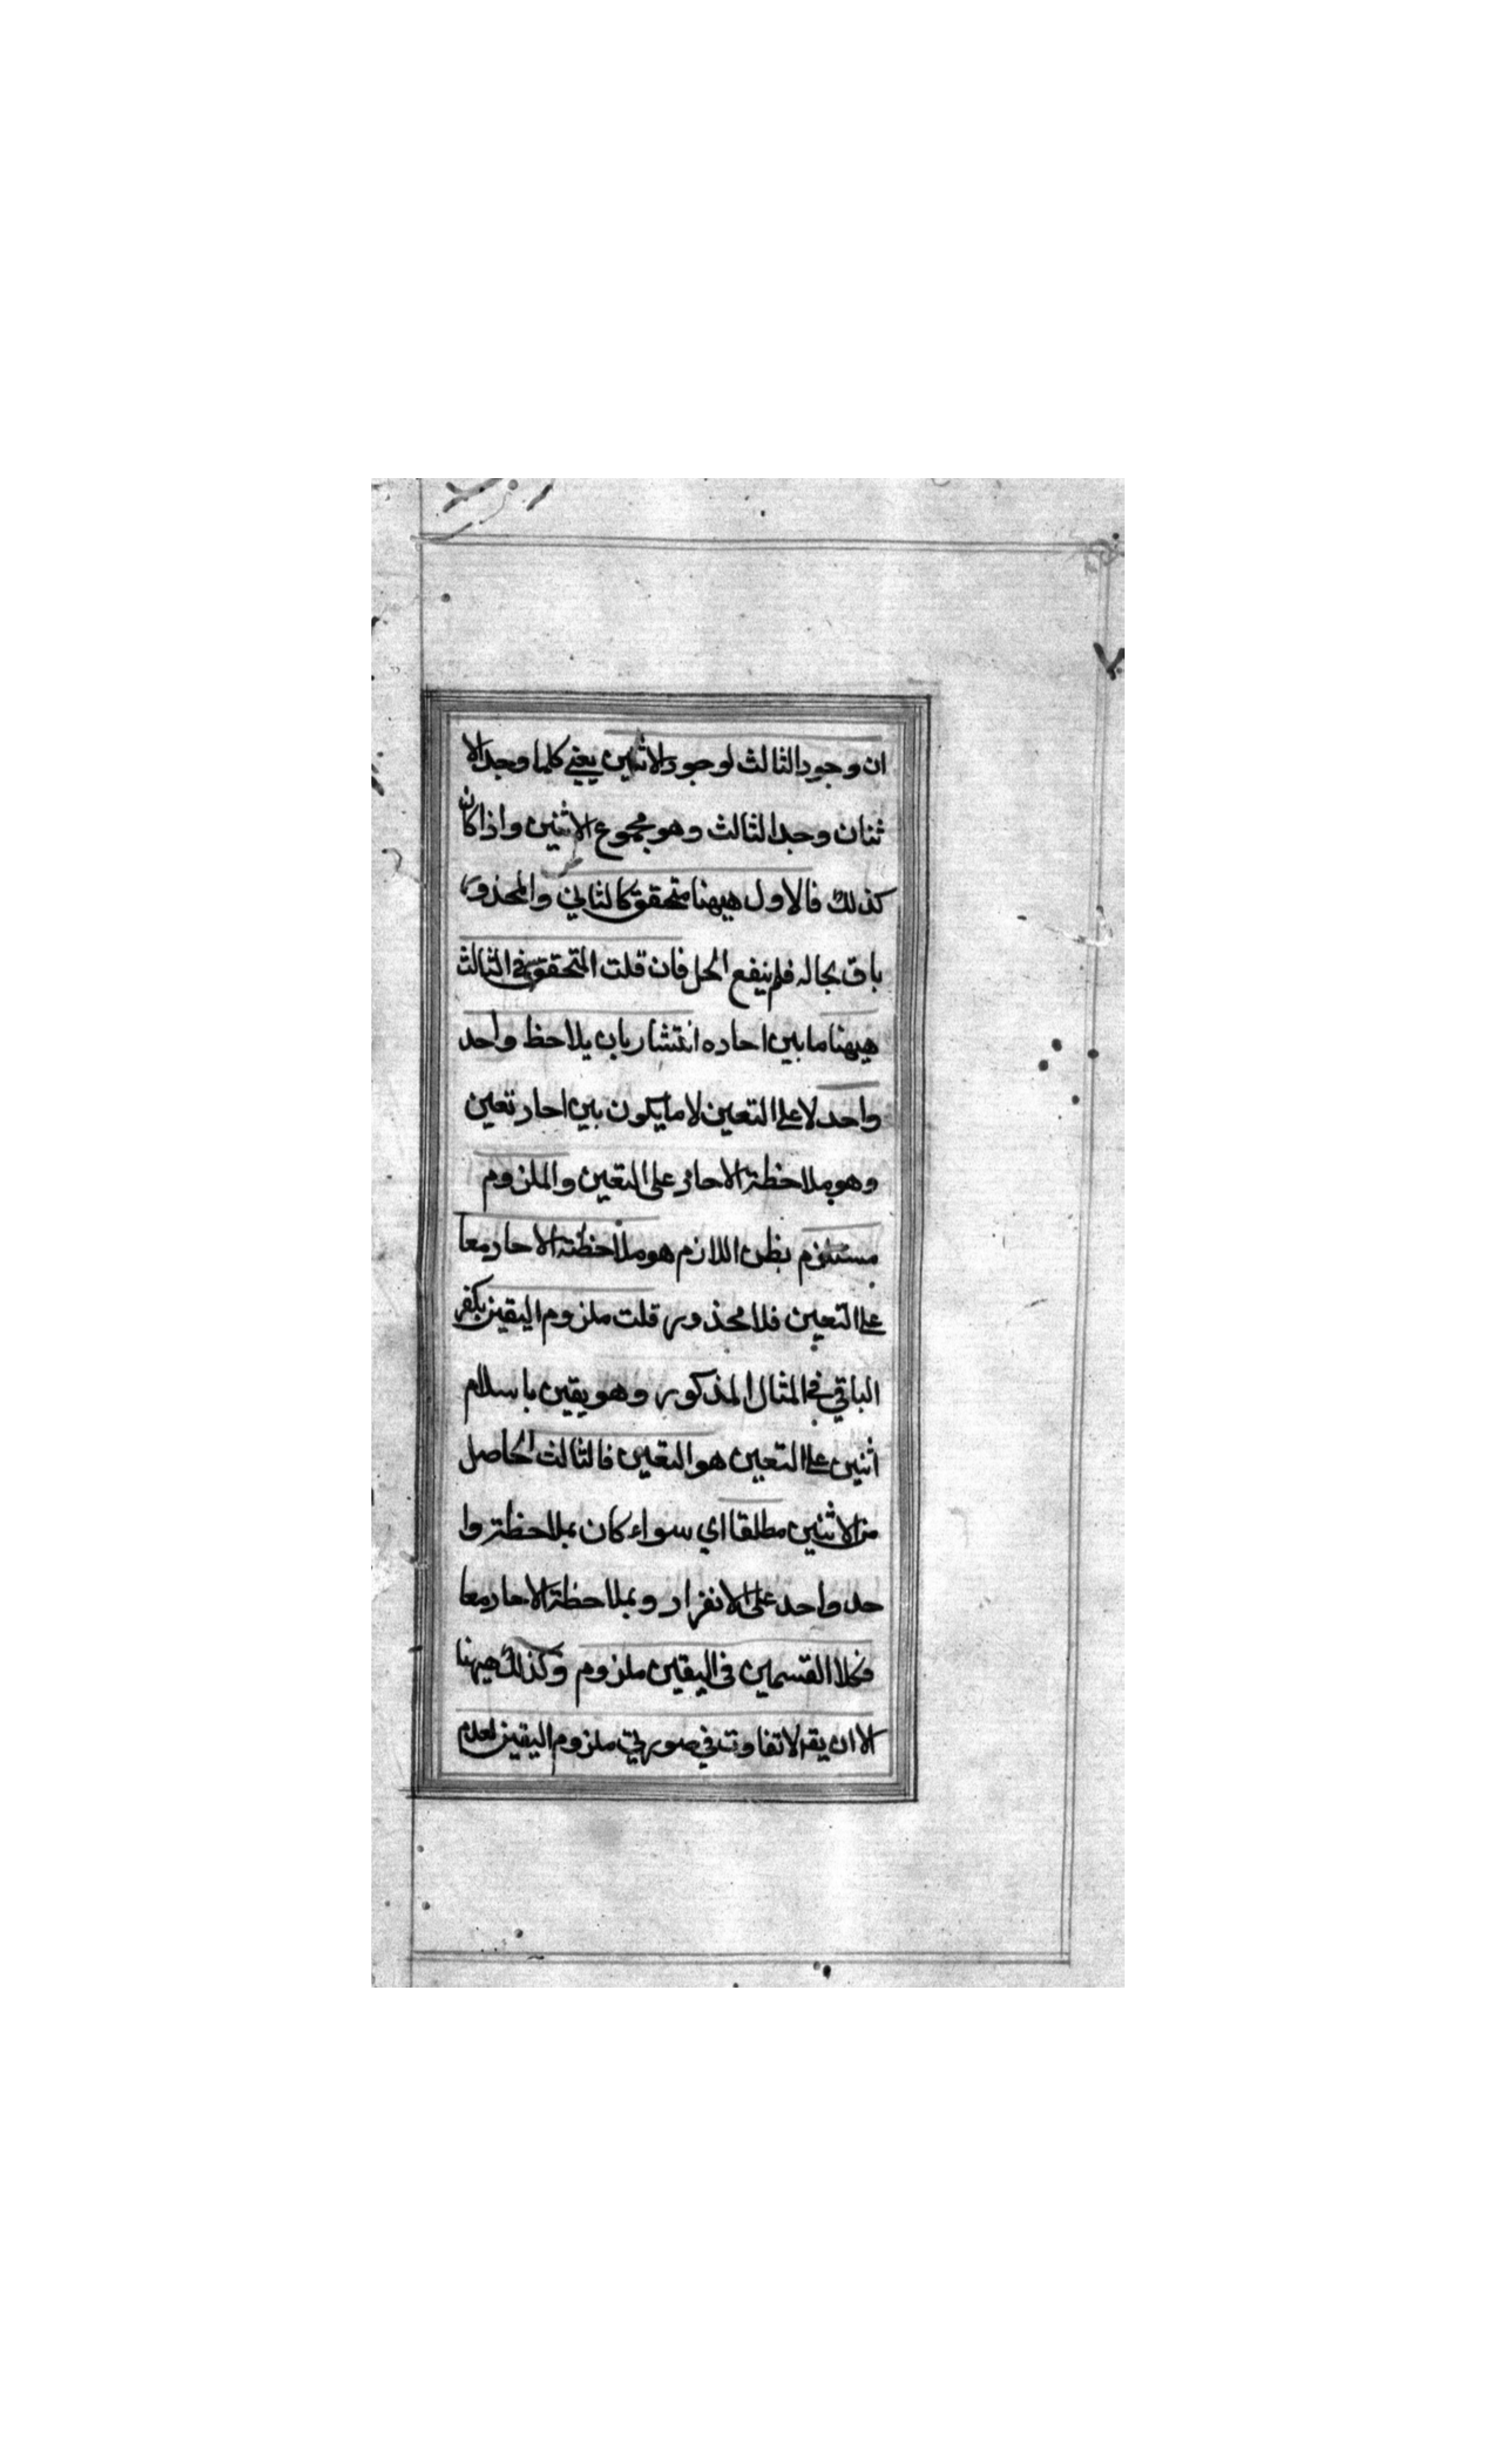 ان وجود الثالث لوجود الاثنين يعني كلما وجد الا
ثنان وجد الثالث وهو مجموع الاثنين واذا كان
كذلك فالاول هيهنا متحقق كالثاني والمحذور
باق بحاله فلم ينفع الحل فان قلت المتحقق في الثالث
هيهنا ما بين احاده انتشار بان يلاحظ واحد
واحد لا على التعين لا ما يكون بين احاد تعين
وهو ملاحظة الاحاد على التعين والملزوم
مستلزم اللازم هو ملاحظة الاحاد معا
على التعين فلا محذور قلت ملزوم اليقين بكفر
الباقي في المثال المذكور وهو يقين باسلام
اثنين على التعين هو التعين فالثالث الحاصل
من الاثنين مطلقا اي سواء كان بملاحظة وا
حد واحد على الانفراد وبملاحظة الاحاد معا
فكلا القسمين في اليقين ملزوم وكذلك هيهنا
الا ان يقر لا تفاوت في صورتي ملزوم اليقين لعدم